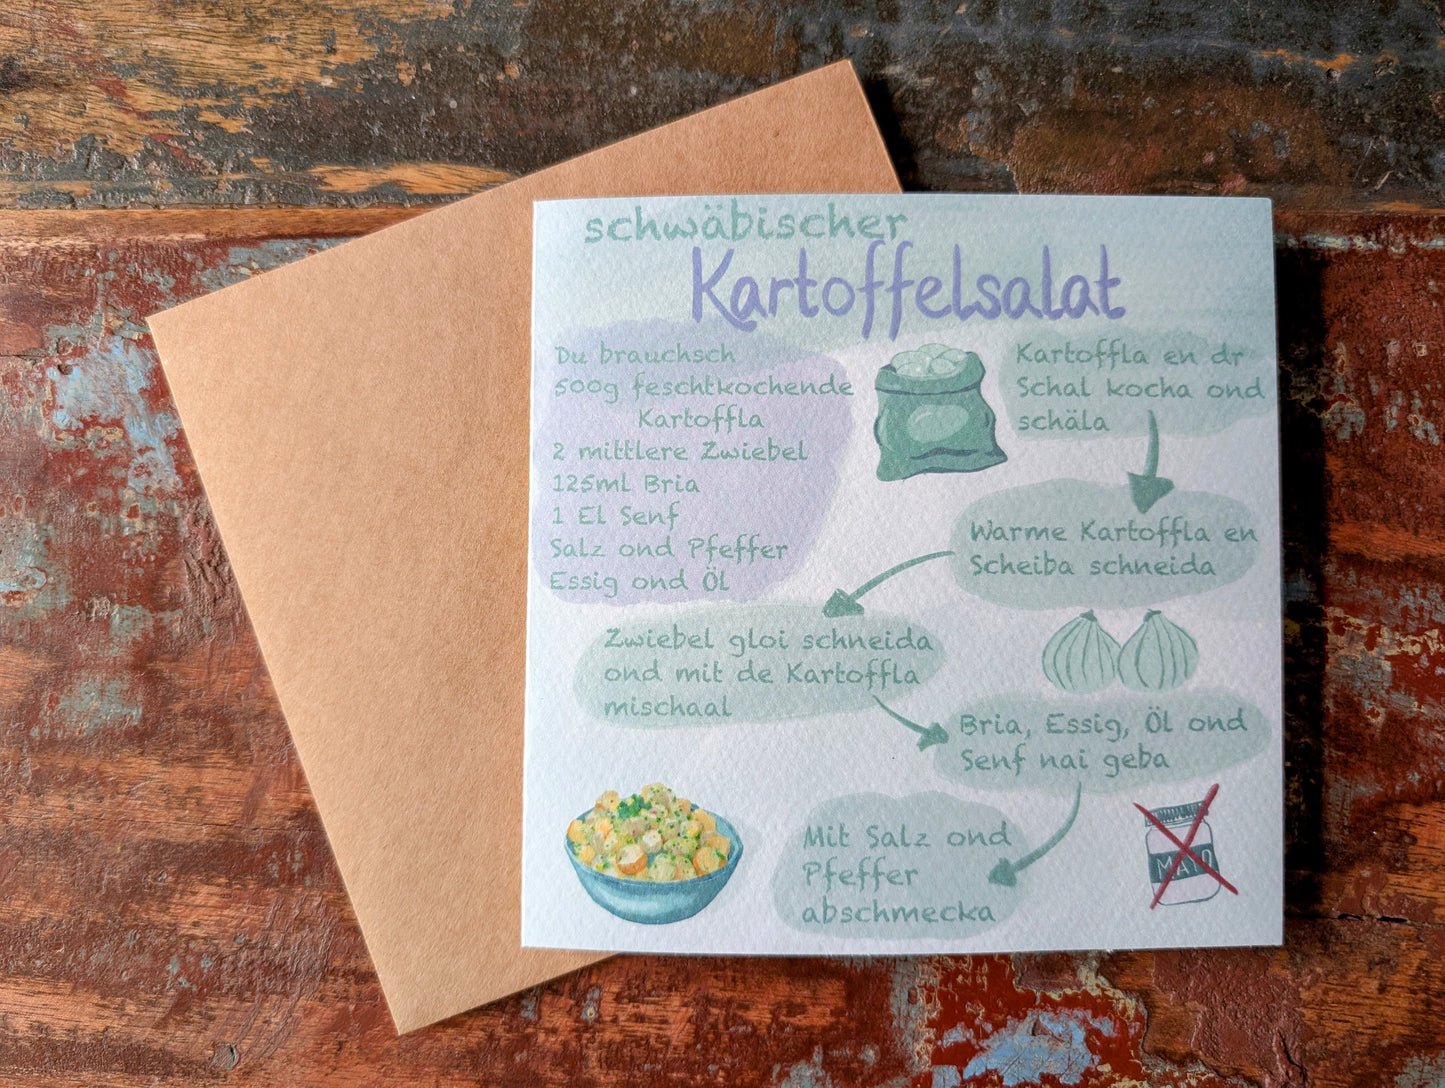 schwäbischer
Kartoffelsalat
Du brauchsch
500g feschtkochende
Kartoffla
2 mittlere Zwiebel
125ml Bria
1 El Senf
Salz ond Pfeffer
Essig ond Öl
Kartoffla en dr
Schal kocha ond
schäla
Warme Kartoffla en
Scheiba schneida
Zwiebel gloi schneida
ond mit de Kartoffla
mischaal
Bria, Essig, Öl ond
Senf nai geba
Mit Salz ond
Pfeffer
abschmecka
MAYO